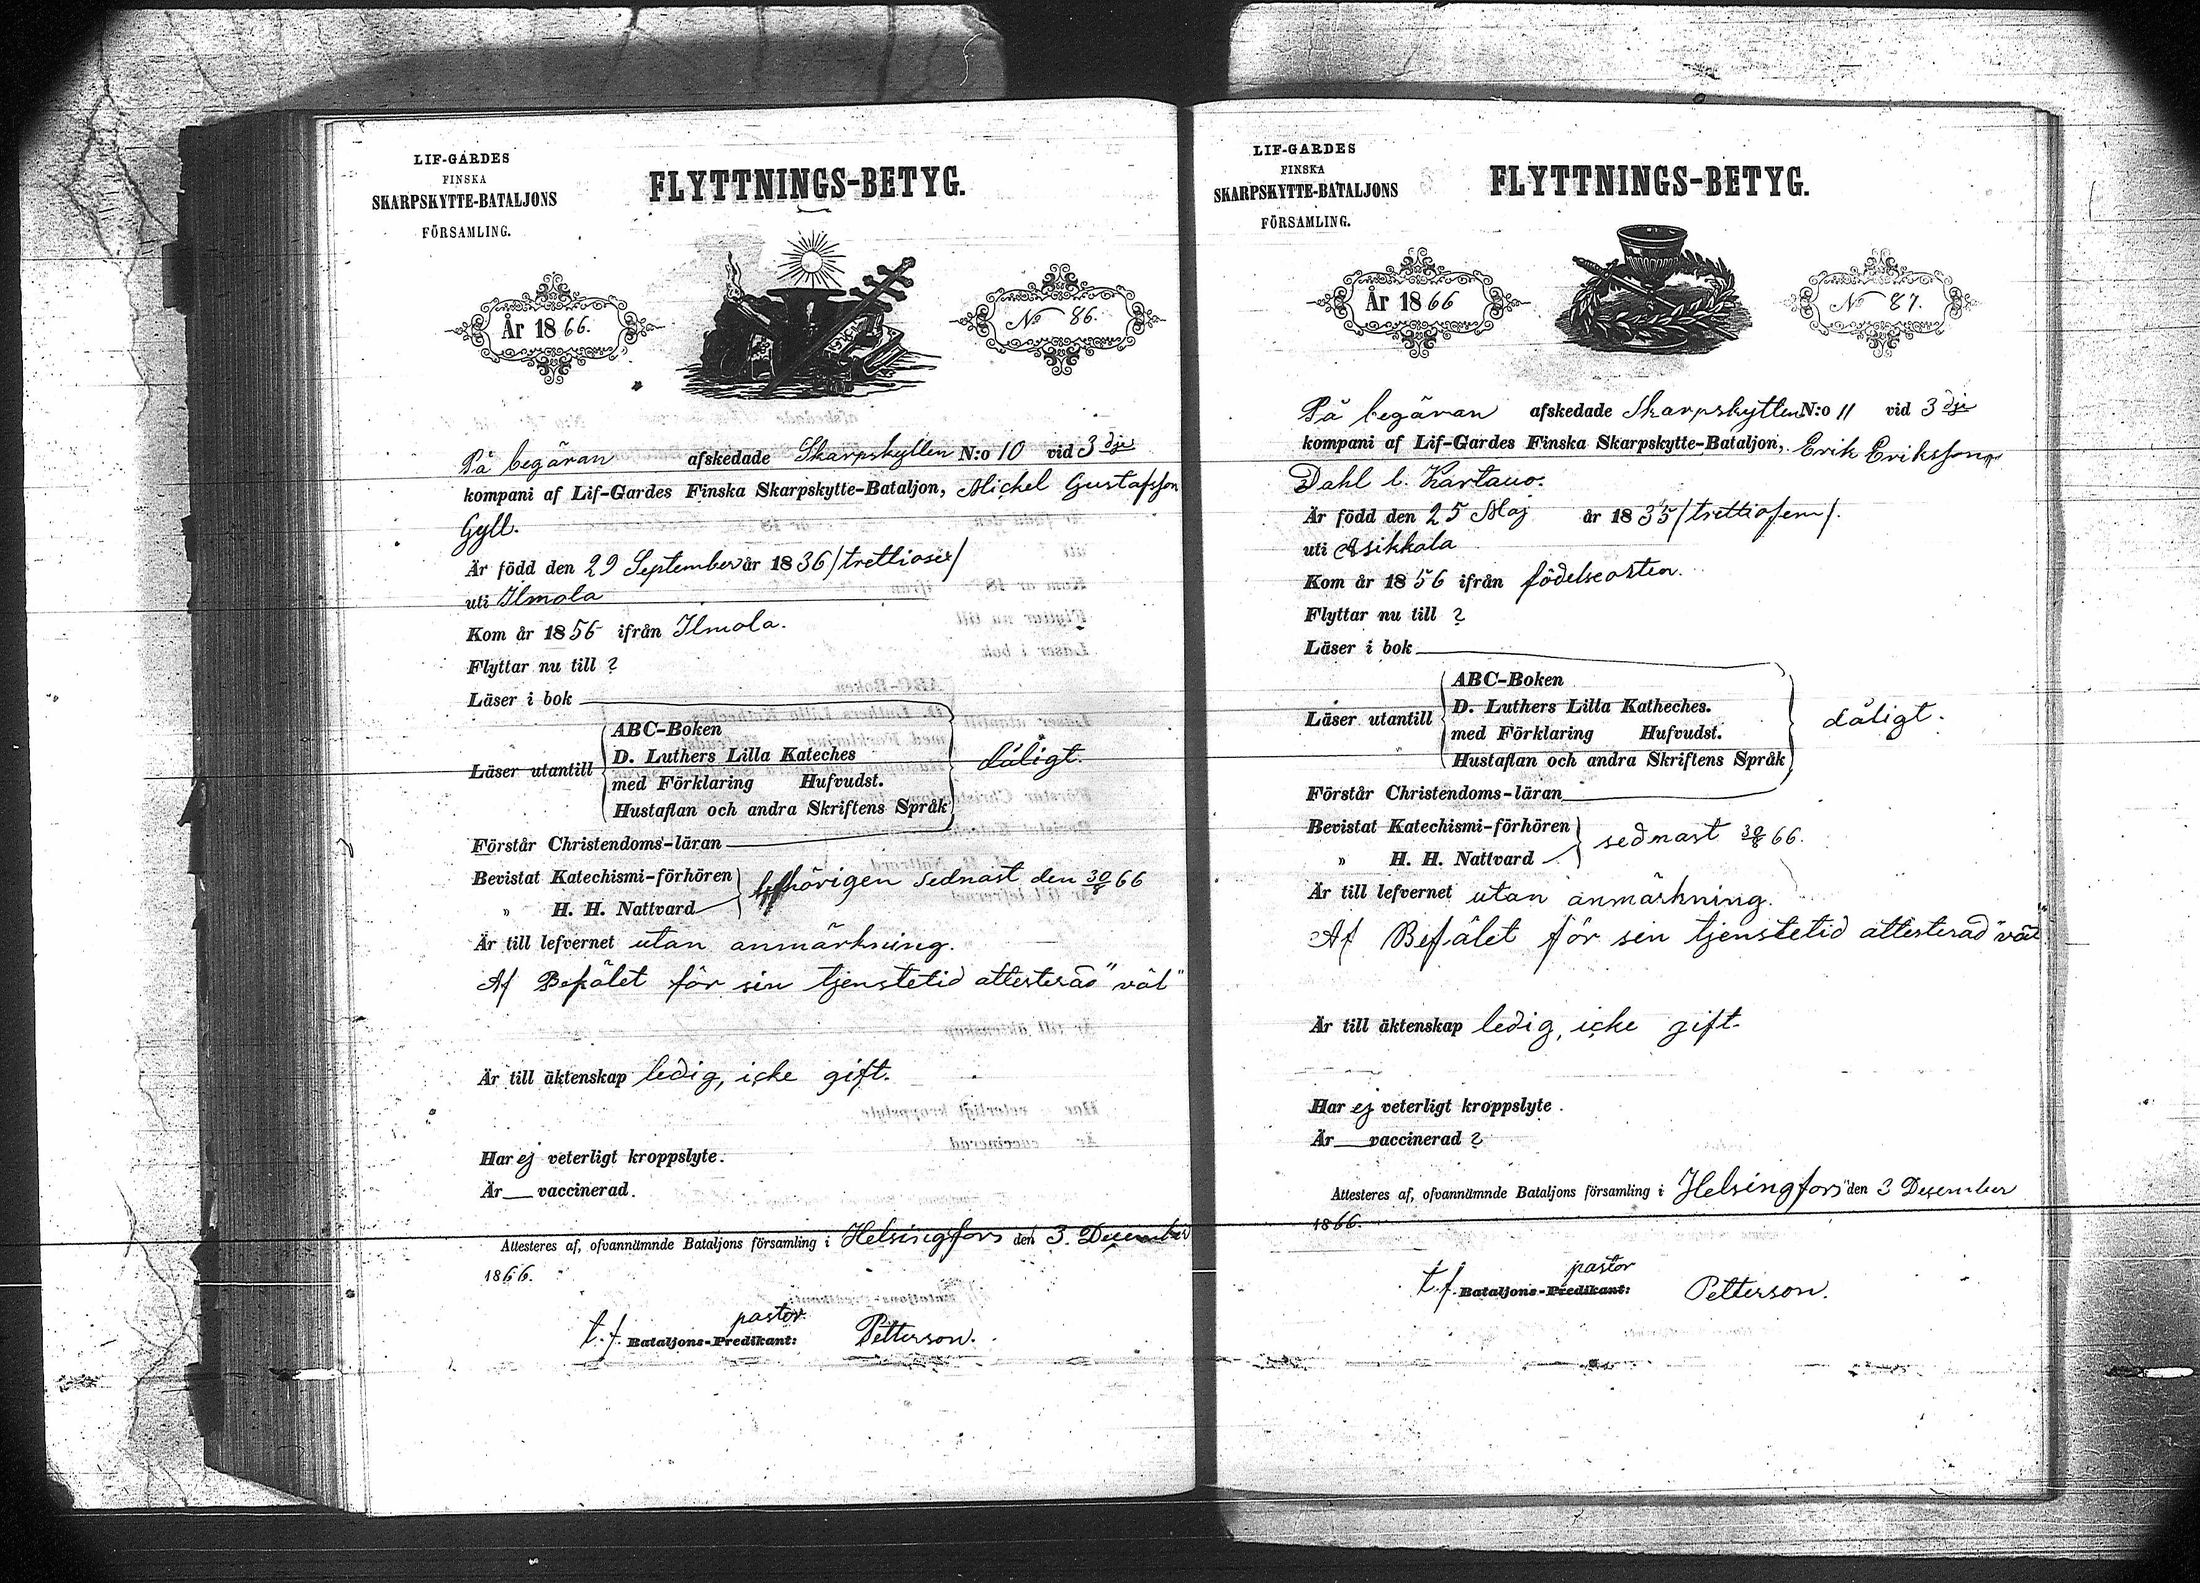 LIF-GARDES
FINSKA
SKARPSKYTTE-BATALJONS
FÖRSAMLING.
FLYTTNINGS-BETYG.
År 1866.
No 86.
På begäran afskedade Skarpskytten N:o 10 vid 3 dje
kompani af Lif-Gardes Finska Skarpskytte-Bataljon, Michel Gustafsson
Gyll.
Är född den 29 September år 1836 /trettiosex/
uti Ilmola
Kom år 1856 ifrån Ilmola.
Flyttar nu till ?
Läser i bok
Läser utantill
ABC-Boken
D. Luthers Lilla Kateches
med Förklaring Hufvudst.
Hustaflan och andra Skriftens Språk
dåligt.
Förstår Christendoms-läran
Bevistat Katechismi-förhören
" H. H. Nattvard
behörigen sednast den 30/8 66
Är till lefvernet utan anmärkning.
Af Befälet för sin tjenstetid attesterad "väl"
Är till äktenskap ledig, icke gift.
Har ej veterligt kroppslyte.
Är — vaccinerad.
Attesteres af, ofvannämnde Bataljons församling i Helsingfors den 3. December
1866.
pastor
t.f. Bataljons-Predikant: Petterson.
LIF-GARDES
FINSKA
SKARPSKYTTE-BATALJONS
FÖRSAMLING.
FLYTTNINGS-BETYG.
År 1866
No 87.
På begäran afskedade Skarpskytten N:o 11 vid 3 dje
kompani af Lif-Gardes Finska Skarpskytte-Bataljon, Erik Eriksson
Dahl l. Kartano.
Är född den 25 Maj år 1835 /trettiofem/.
uti Asikkala
Kom år 1856 ifrån födelseorten.
Flyttar nu till ?
Läser i bok
Läser utantill
ABC-Boken
D. Luthers Lilla Katheches.
med Förklaring Hufvudst.
Hustaflan och andra Skriftens Språk
dåligt.
Förstår Christendoms-läran
Bevistat Katechismi-förhören
" H. H. Nattvard
sednast 30/8 66.
Är till lefvernet utan anmärkning.
Af Befälet för sin tjenstetid attesterad "väl"
Är till äktenskap ledig, icke gift.
Har ej veterligt kroppslyte.
Är — vaccinerad ?
Attesteres af, ofvannämnde Bataljons församling i Helsingfors den 3 December
1866.
pastor
t.f. Bataljons-Predikant: Petterson.